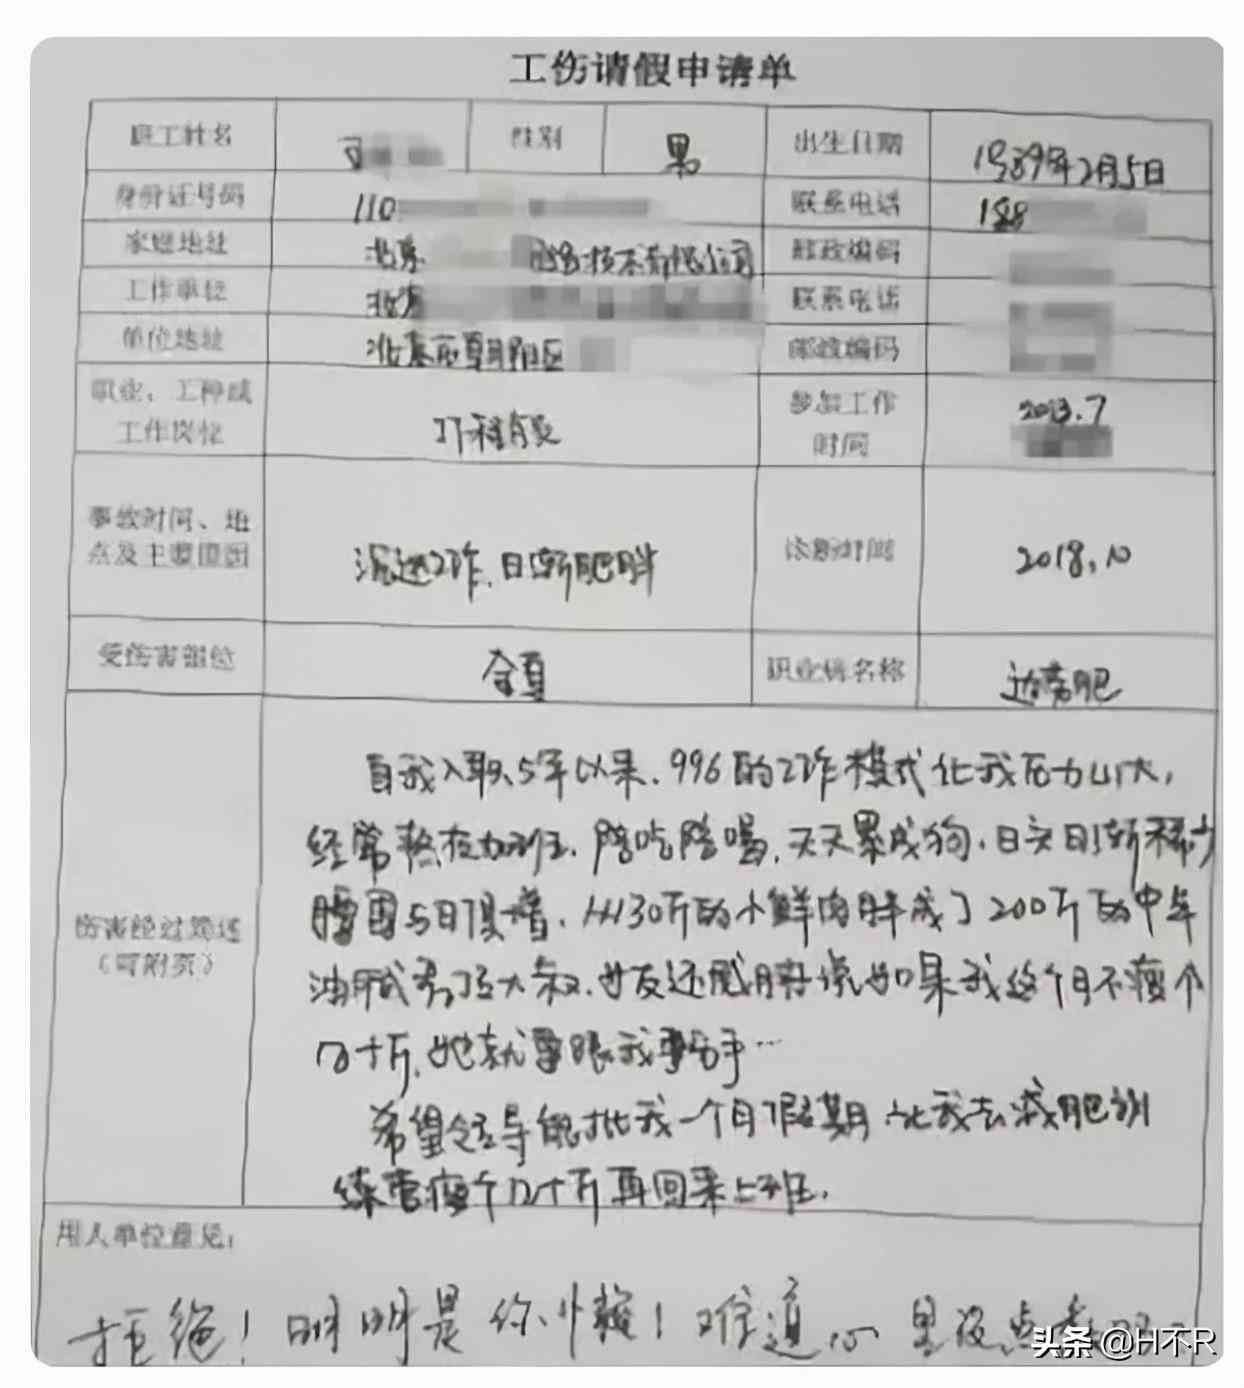 工伤请假申请单
职工姓名 性别 男 出生日期 1989年2月5日
身份证号码 110 联系电话 188
家庭地址 北京 网络技术有限公司 邮政编码
工作单位 北京 联系电话
单位地址 北京市朝阳区 邮政编码
职业、工种或 参加工作 2013.7
工作岗位 IT程序员 时间
事故时间、地
点及主要原因 沉迷工作、日渐肥胖 诊断时间 2018.10
受伤害部位 全身 职业病名称 过劳肥
自我入职5年以来、996的工作模式让我压力山大，
经常熬夜加班、陪吃陪喝，天天累成狗、日头日渐稀少
腰围与日俱增、从130斤的小鲜肉胖成了200斤的中年
伤害经过简述
（可附页）
油腻秃顶大叔、女友还威胁说如果我这个月不瘦个
几十斤，她就要跟我分手…
希望领导能批我一个月假期，让我去减肥训
练营瘦个几十斤再回来上班。
用人单位意见：
拒绝！明明是你懒！难道心里没点
头条 @H不R